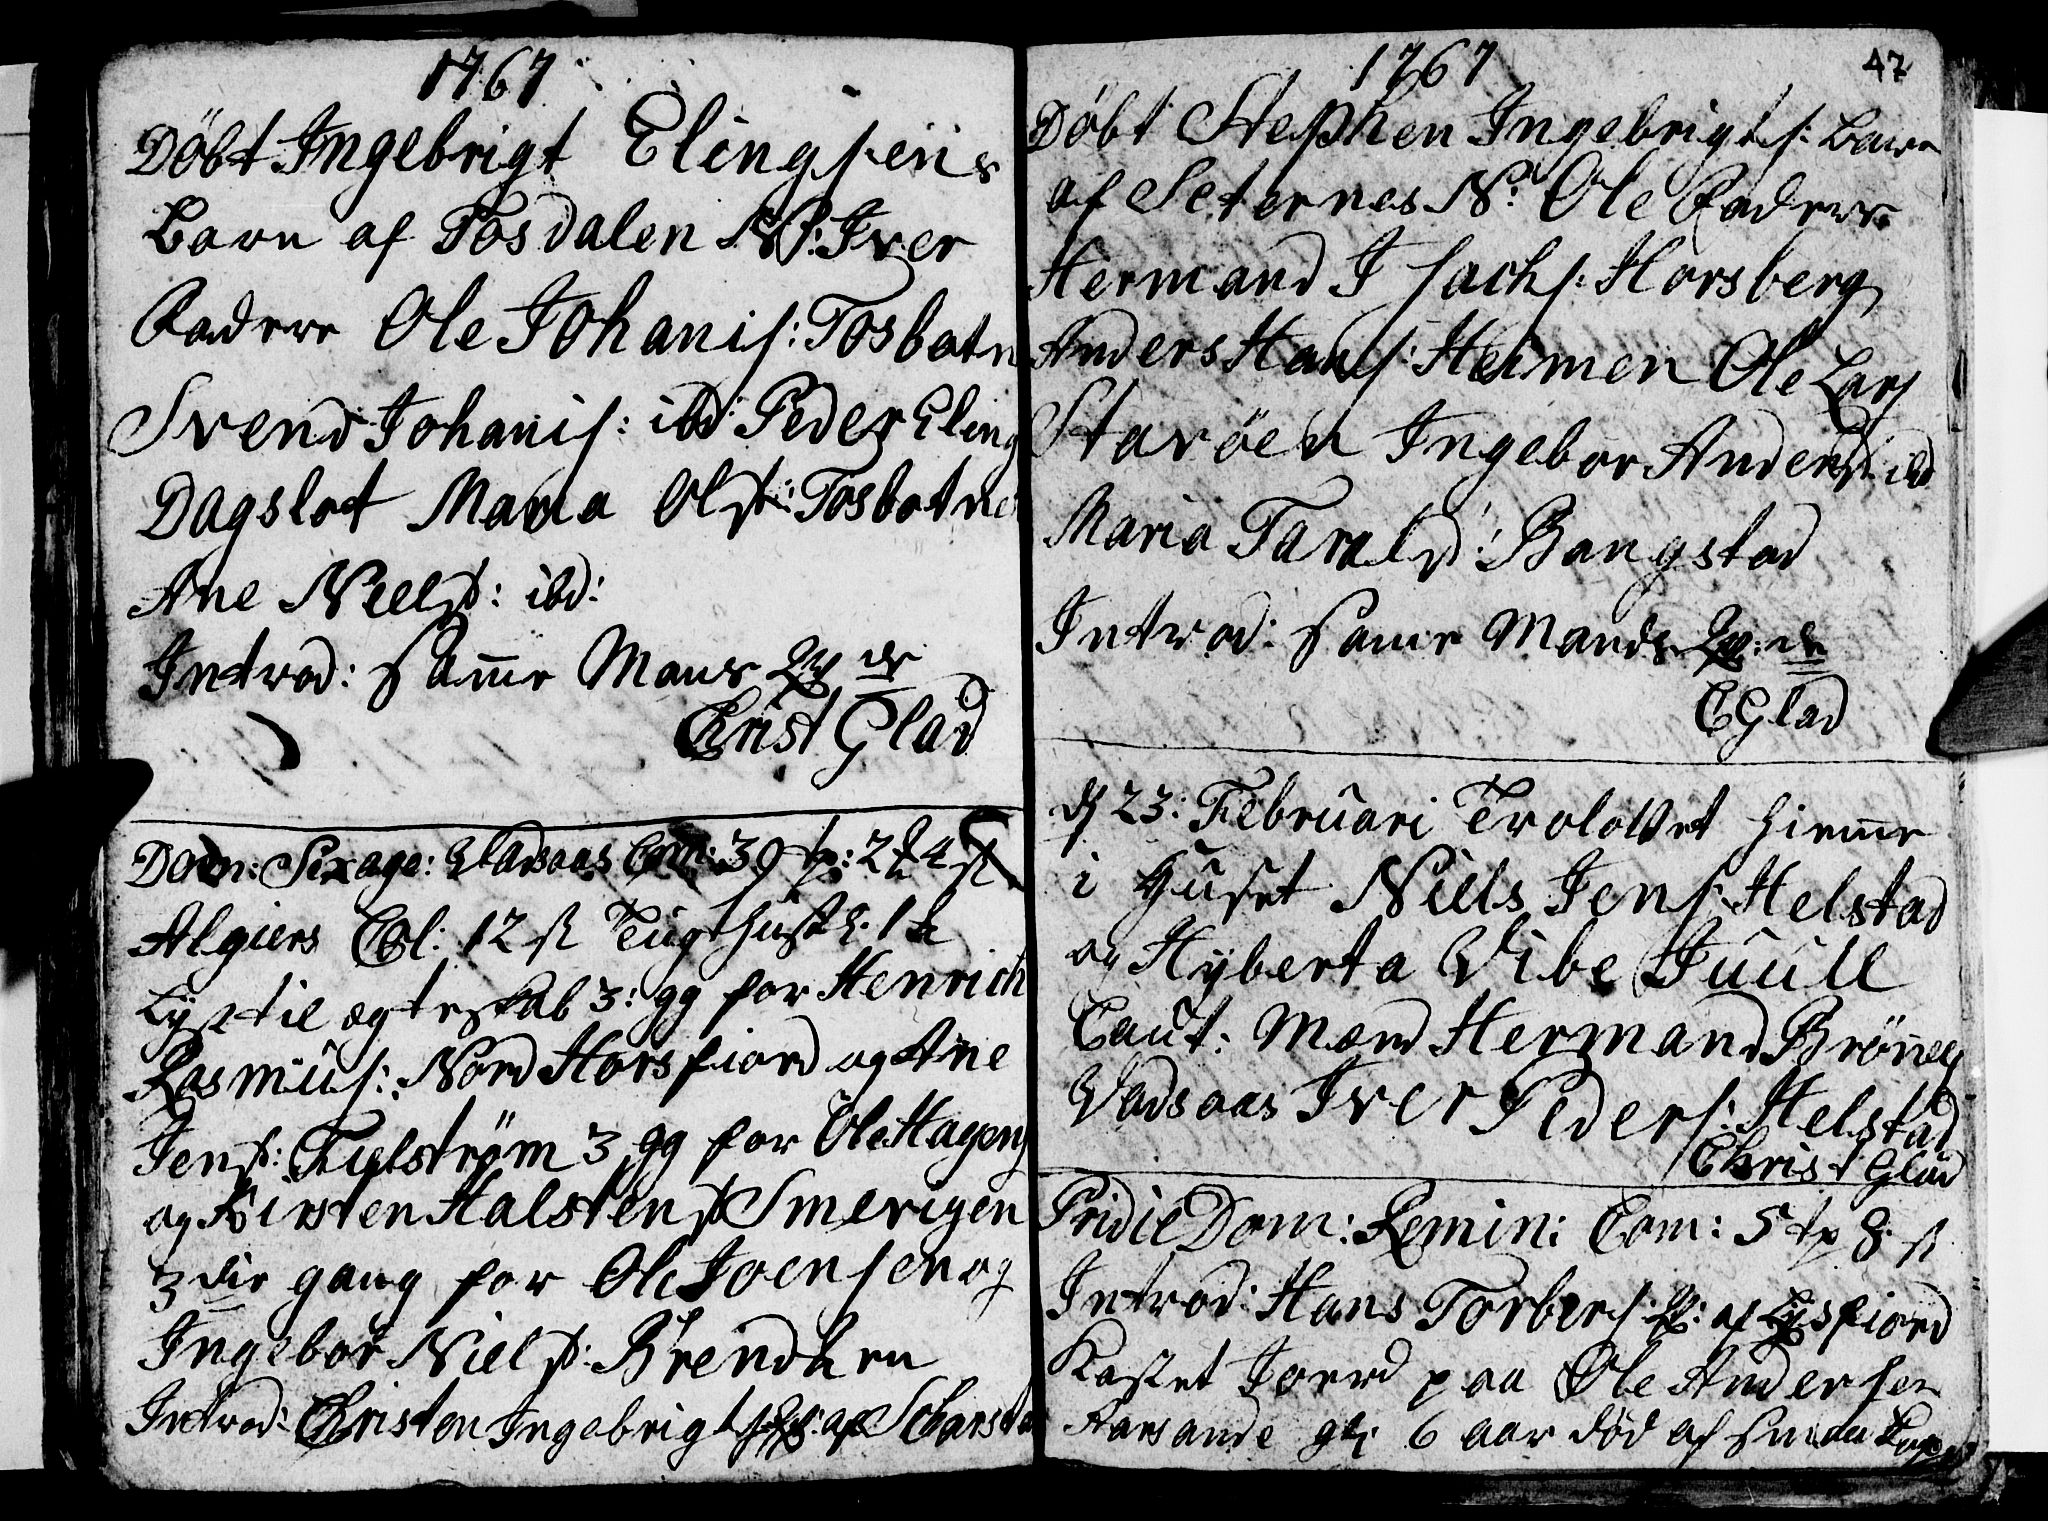 1767
Döbt Ingebrigt Elingsens
Barn af Tosdalen N: Iver
Fadere Ole Johanis: Tosbotn
Svend Johanis: ibd: Peder Eling
Dagslot Maria Olsd: Tosbotne
Ane Neelsd: ibd:
Introd: samme Mands Qv
Christ Glad
Dom: Sexage: Vadsaas Com: 39 2 4 s
Algiers Col: 12 s Tugthust 1
Lyst til ægteskab 3: gg for Henrich
Rasmus: Nord Horsfiord og Ane
Jensd: Fielström 3 gg for Ole Hagens
og Kirsten Halstensd Smevigen
3die gang for Ole Joensen og
Ingebor Nielsd: Brendhen
Introd: Christen Ingebrigts Qv: af Scharsta
1767
47
Döbt Stephen Ingebrigts: Barn
af Seternes N: Ole Fadere
Hermand Isachs: Horsberg
Anders Hans: Heimen Ole Lars
Stavöen Ingebor Andersd: ibd
Maria Taralsd: Bangstad
Introd: samme Mands Qv:
C Glad
d 23: Februari Trolovet hieme
i Huset Niels Jens: Helstad
og Hyberta Vibe Juull
Caut: Mænd Hermand Brönels
Vadsaas Iver Peders: Helstad
Christ Glad
Pridie Dom: Remin: Com: 5 8 s
Introd: Hans Torbers: Qv: af Lysfiord
Kastet Jord paa Ole Andersen
Aarsande gl: 6 aar död af smaa